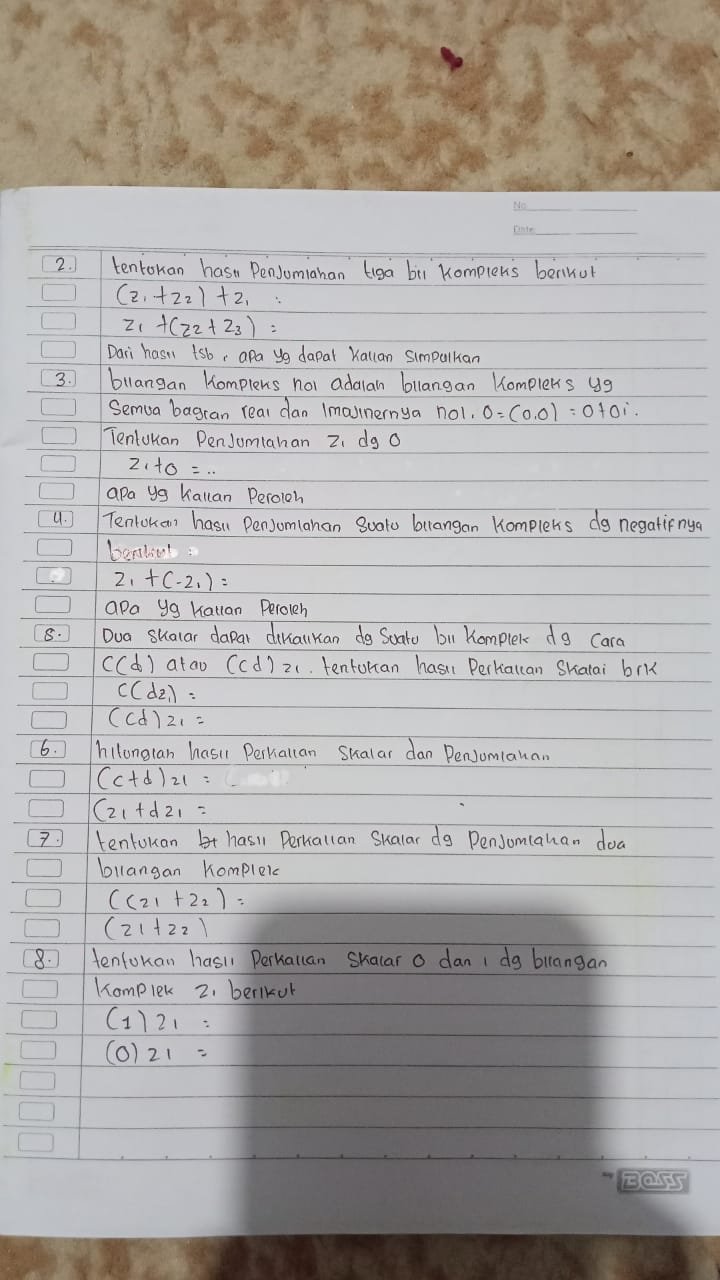 No
Date
2. tentukan hasil Penjumlahan tiga bil kompleks berikut
(z1 + z2) + z1 :
z1 + (z2 + z3) :
Dari hasil tsb, apa yg dapat kalian simpulkan
3. bilangan kompleks nol adalah bilangan kompleks yg
Semua bagian real dan Imajinernya nol. 0 = (0.0) = 0 + 0i.
Tentukan Penjumlahan z1 dg 0
z1 + 0 = ..
apa yg kalian Peroleh
4. Tentukan hasil Penjumlahan Suatu bilangan kompleks dg negatifnya
berikut :
z1 + (-z1) :
apa yg kalian Peroleh
5. Dua skalar dapat dikalikan dg Suatu bil komplek dg Cara
C(d) atau (cd) z1. tentukan hasil Perkalian Skalar brk
C(dz1) =
(cd) z1 =
6. hitunglah hasil Perkalian Skalar dan Penjumlahan
(c+d) z1 =
Cz1 + dz1 =
7. tentukan hasil Perkalian Skalar dg Penjumlahan dua
bilangan Komplek
C(z1 + z2) =
(z1 + z2)
8. tentukan hasil Perkalian Skalar 0 dan 1 dg bilangan
Komplek z1 berikut
(1) z1 :
(0) z1 =
BOSS